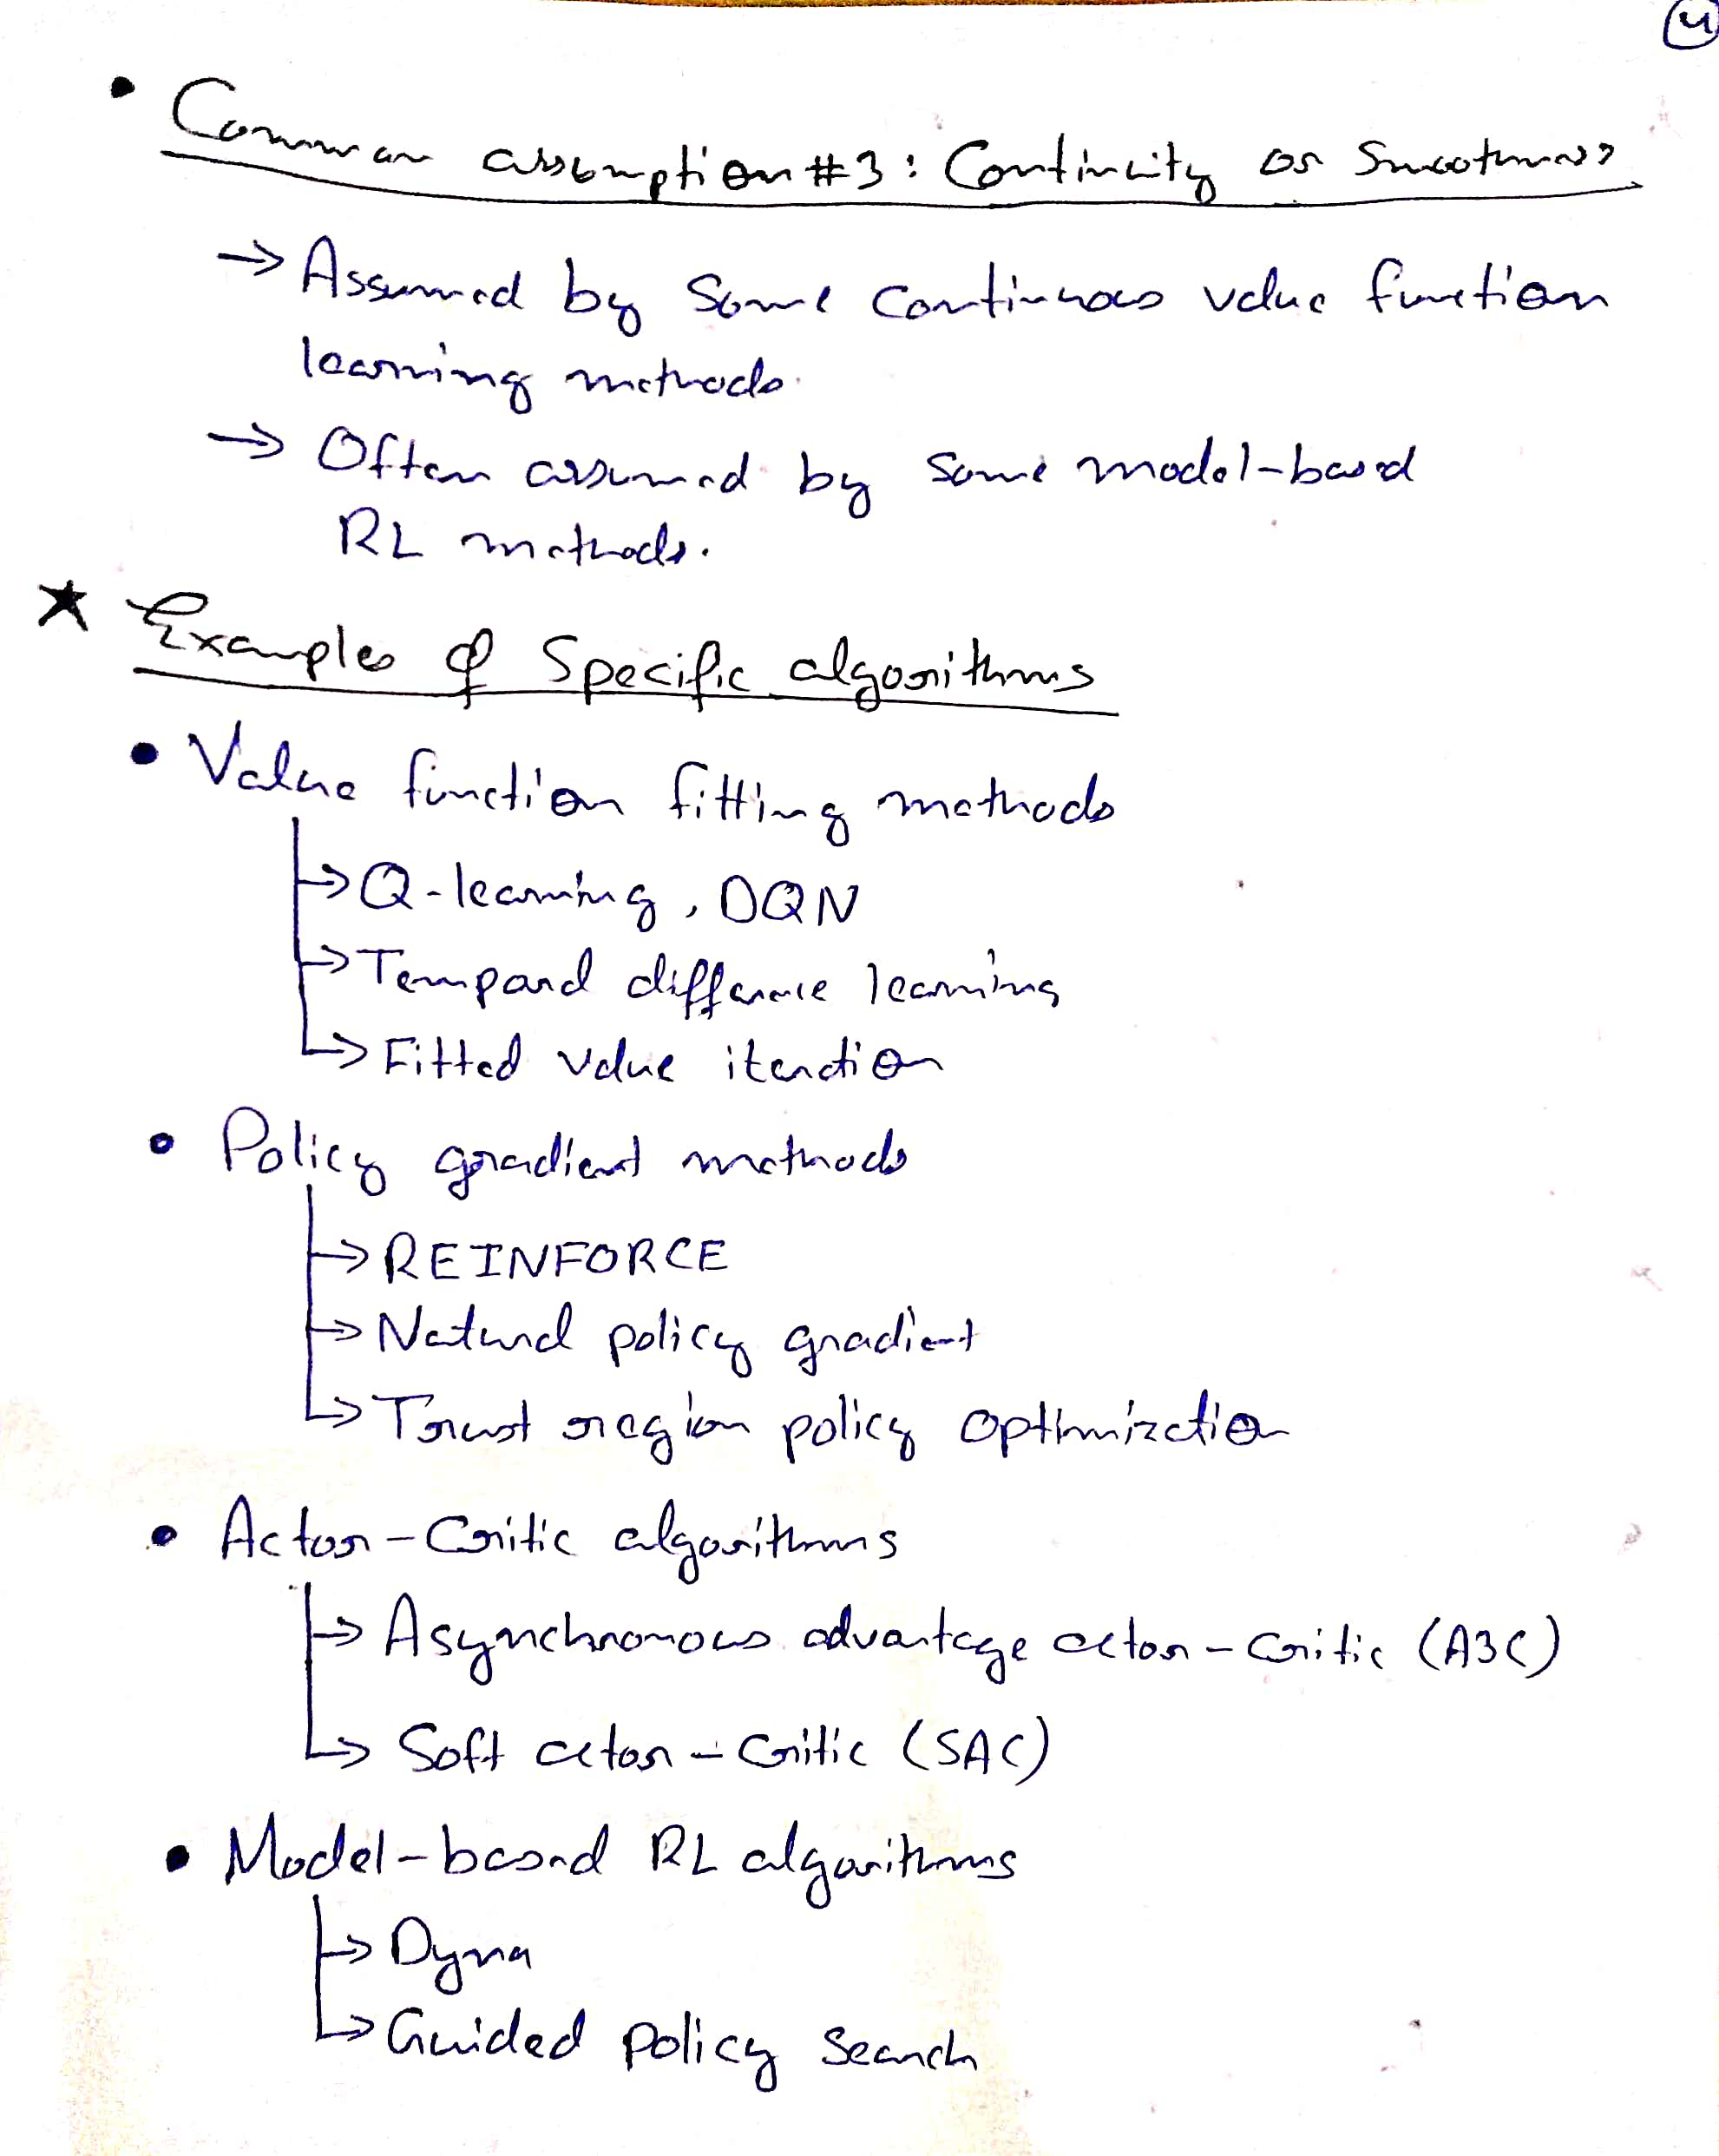 4
• Common assumption #3: Continuity or Smoothness
→ Assumed by some continuous value function
learning methods.
→ Often assumed by some model-based
RL methods.
★ Examples of Specific algorithms
• Value function fitting methods
→ Q-learning, DQN
→ Temporal difference learning
→ Fitted value iteration
• Policy gradient methods
→ REINFORCE
→ Natural policy gradient
→ Trust region policy optimization
• Actor-Critic algorithms
→ Asynchronous advantage actor-critic (A3C)
→ Soft actor-critic (SAC)
• Model-based RL algorithms
→ Dyna
→ Guided policy search